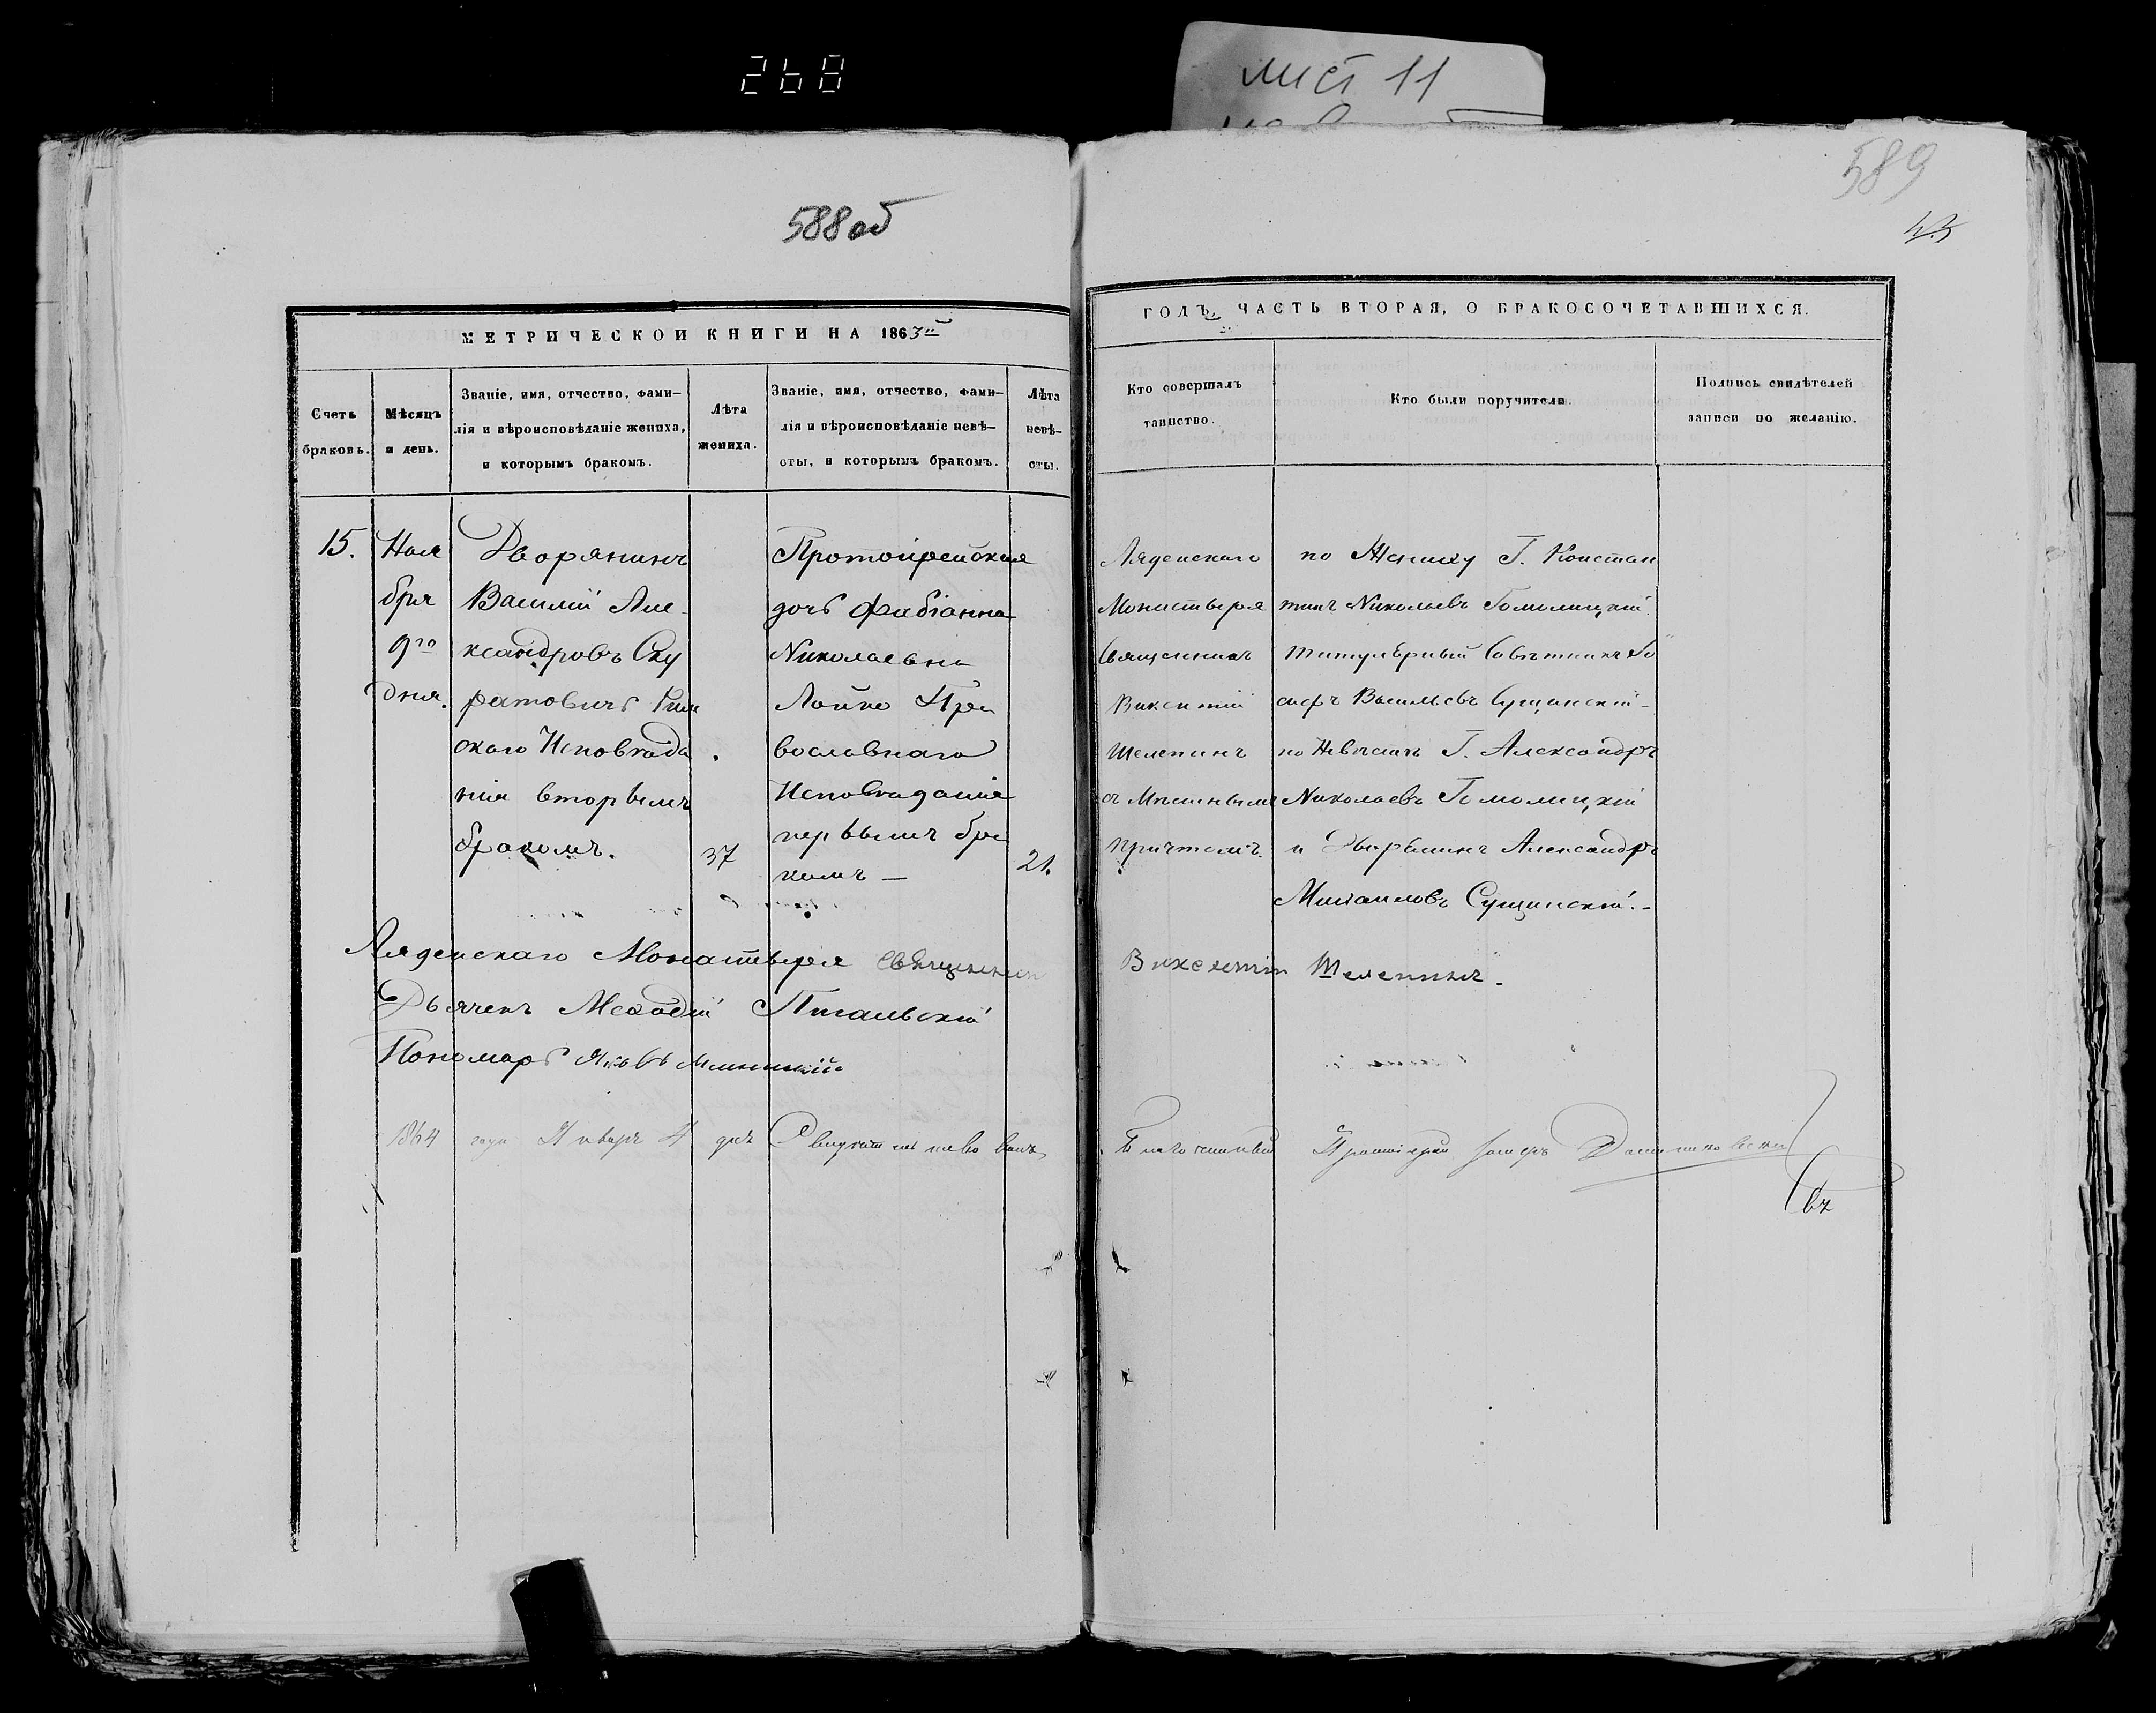 268
лист 11
588 об
589
43
МЕТРИЧЕСКОЙ КНИГИ НА 1863й
ГОДЪ, ЧАСТЬ ВТОРАЯ, О БРАКОСОЧЕТАВШИХСЯ.
Счетъ
браковъ.
Мѣсяцъ
и день.
Званіе, имя, отчество, фами-
лія и вѣроисповѣданіе жениха,
и которымъ бракомъ.
Лѣта
жениха.
Званіе, имя, отчество, фами-
лія и вѣроисповѣданіе невѣ-
сты, и которымъ бракомъ.
Лѣта
невѣ-
сты.
Кто совершалъ
таинство.
Кто были поручители.
Подпись свидѣтелей
записи по желанію.
15.
Ноя
бря
9го
дня.
Дворянинъ
Василій Але-
ксандровъ Ску
ратовичъ Рим
скаго Исповѣда
нія вторымъ
бракомъ.
37
Протоіерейская
дочь Фабіанна
Николаевна
Лойко Пра
вославнаго
Исповѣданія
первымъ бра
комъ —
21.
Ляденскаго
Монастыря
Священникъ
Викентій
Шелепинъ
съ Мѣстнымъ
причтомъ.
по Жениху Г. Констан
тинъ Николаевъ Гомолицкій
Титулярный Совѣтникъ Іо
сифъ Васильевъ Сущинскій -
по Невѣстѣ Г. Александръ
Николаевъ Гомолицкій
и Дворянинъ Александръ
Михаиловъ Сущинскій. -
Ляденскаго Монастыря Священник Викентій Шелепинъ.
Дьячекъ Меѳодій
Пономарь Яковъ
1864 года Январь 4 дня Свидѣтельствовалъ, Благочинный Протоіерей